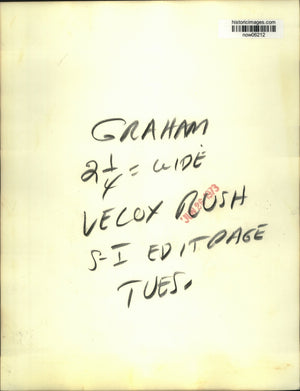 historicimages.com
now06212
GRAHAM
2 1/4 = WIDE
VELOX RUSH
S-I EDITPAGE
TUES.